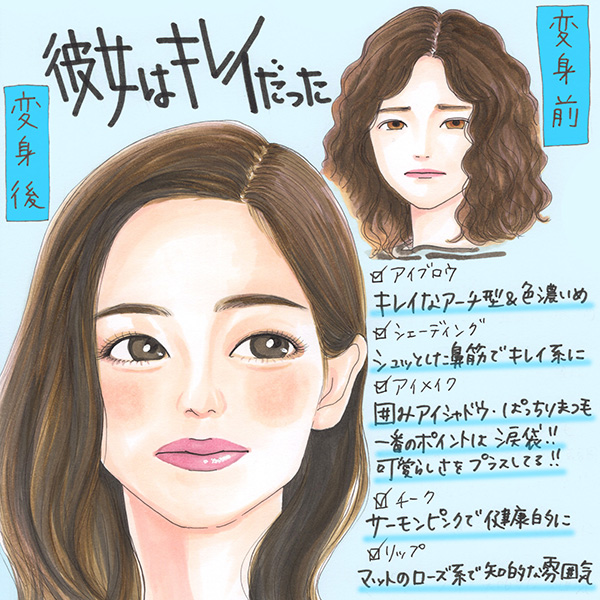 彼女はキレイだった
変身前
変身後
☑アイブロウ
キレイなアーチ型&色濃いめ
☑シェーディング
シュッとした鼻筋でキレイ系に
☑アイメイク
囲みアイシャドウ・ぱっちりまつも
一番のポイントは涙袋!!
可愛らしさをプラスしてる!!
☑チーク
サーモンピンクで健康的に
☑リップ
マットのローズ系で知的な雰囲気